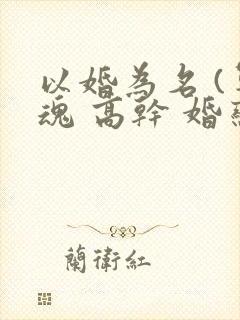 以婚為名(
魂 高幹 婚
蘭衛紅